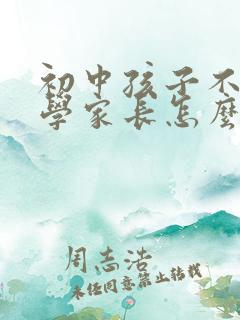 初中孩子不
學家长怎麼
周志浩
未经同意禁止转载